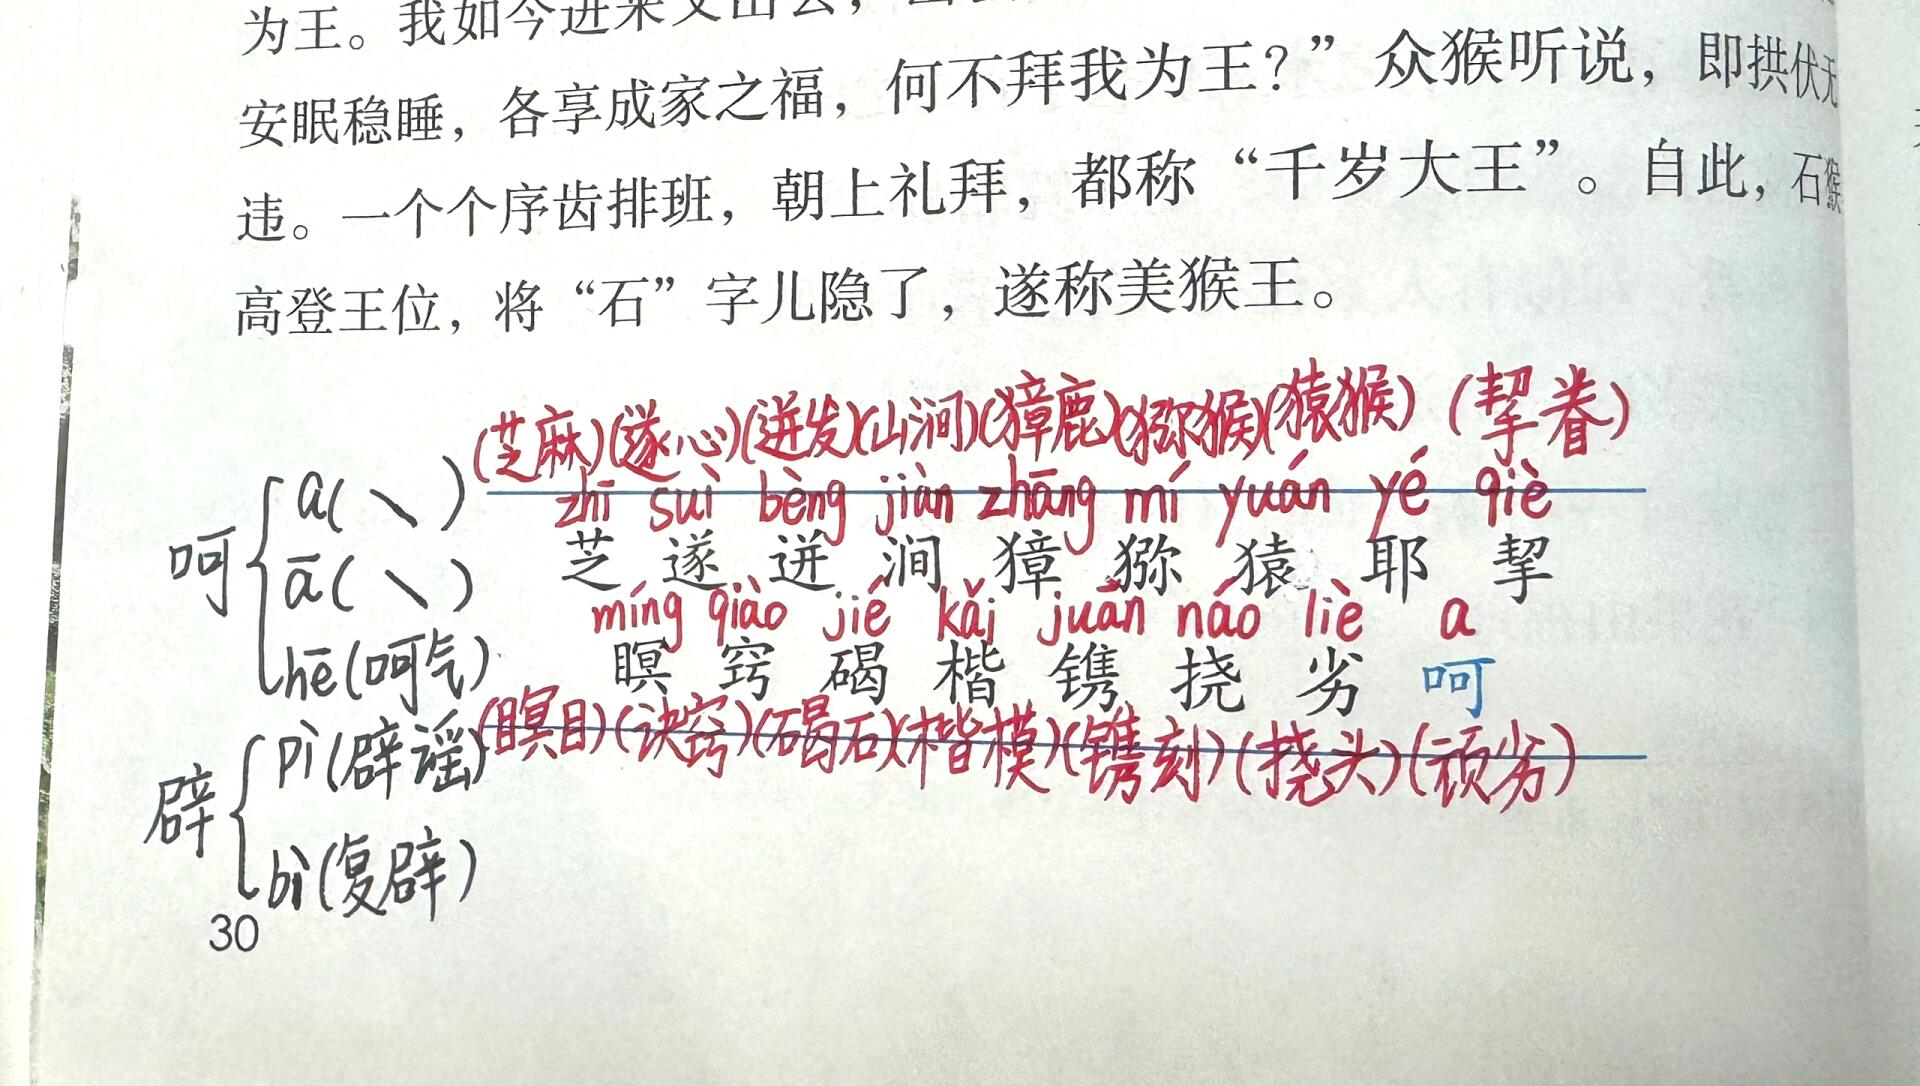 为王。我如今进来又出去，
安眠稳睡，各享成家之福，何不拜我为王？”众猴听说，即拱伏无
违。一个个序齿排班，朝上礼拜，都称“千岁大王”。自此，石猴
高登王位，将“石”字儿隐了，遂称美猴王。
(芝麻)(遂心)(迸发)(山涧)(獐鹿)(猕猴)(猿猴) (挈眷)
zhī suì bèng jiàn zhāng mí yuán yé qiè
芝 遂 迸 涧 獐 猕 猿 耶 挈
míng qiào jié kǎi juān náo liè a
瞑 窍 碣 楷 镌 挠 劣 呵
(瞑目)(诀窍)(碣石)(楷模)(镌刻)(挠头)(顽劣)
呵
a(＼)
ā(＼)
hē(呵气)
辟
pì(辟谣)
bì(复辟)
30